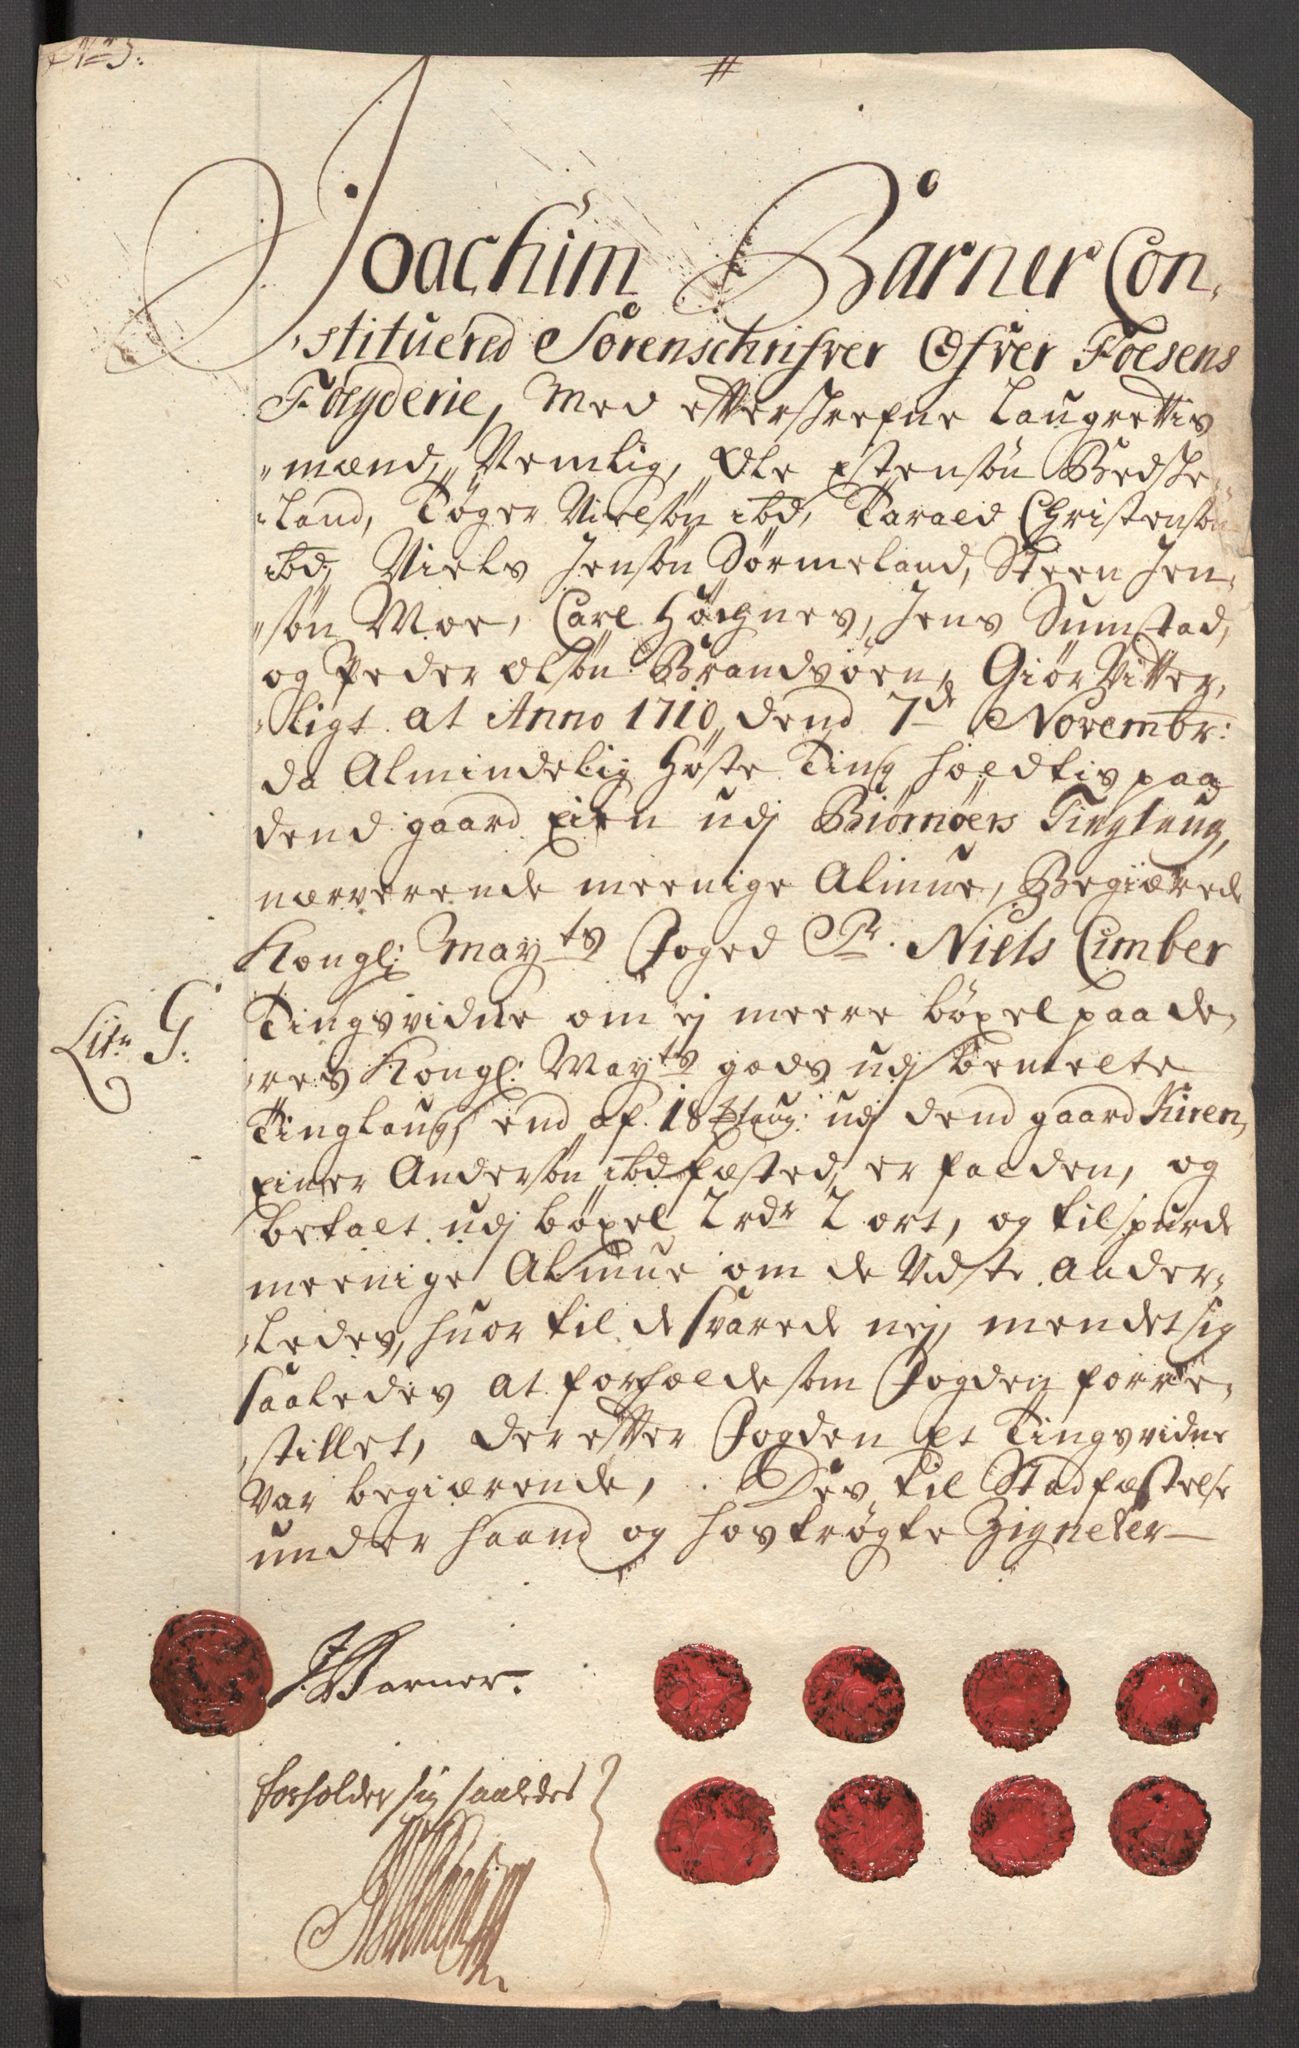 No 5.
#
Joachim Barner Con-
stituered Sorenschrifver Ofver Foesens
Foyderie, Med efterschrefne Laugrettis
mænd, Nemlig, Ole Estensøn Bedsche-
land, Tøger Nielsøn ibd, Tarald Christensøn
ibd, Niels Jensøn Sørmeland, Steen Jen-
søn Moe, Carl Høignes, Jens Sumstad,
og Peder Olsøn Brandsøen, Giør Vitter-
ligt at Anno 1710, dend 7de Novembr:
da Almindelig Høste Ting holdtis paa
dend gaard udj Biørnøers Tinglaug,
nærverende meenige Almue, Begiærede
Kongl: Mayts Foged Sr. Niels Cimber
Litr G:
Tingsvidne om ej meere bøxel paa de-
res Kongl: Mayts gods udj bemelte
Tinglaug, end af 18 udj dend gaard Kiren,
Einer Andersøn ibd fæsted, er falden, og
betalt udj bøxel 2 rdr 2 ort, og tilspurde
meenige Almue om de Vidste ander-
ledes, huor til de svarede nej, men det sig
saaledes at forholde som Fogden forre-
stillet, der efter Fogden et Tingsvidne
var begiærende, Dis til Stadfæstelse
under haand og hostrøgte Zigneter
J. Barner.
forholder sig saaledes